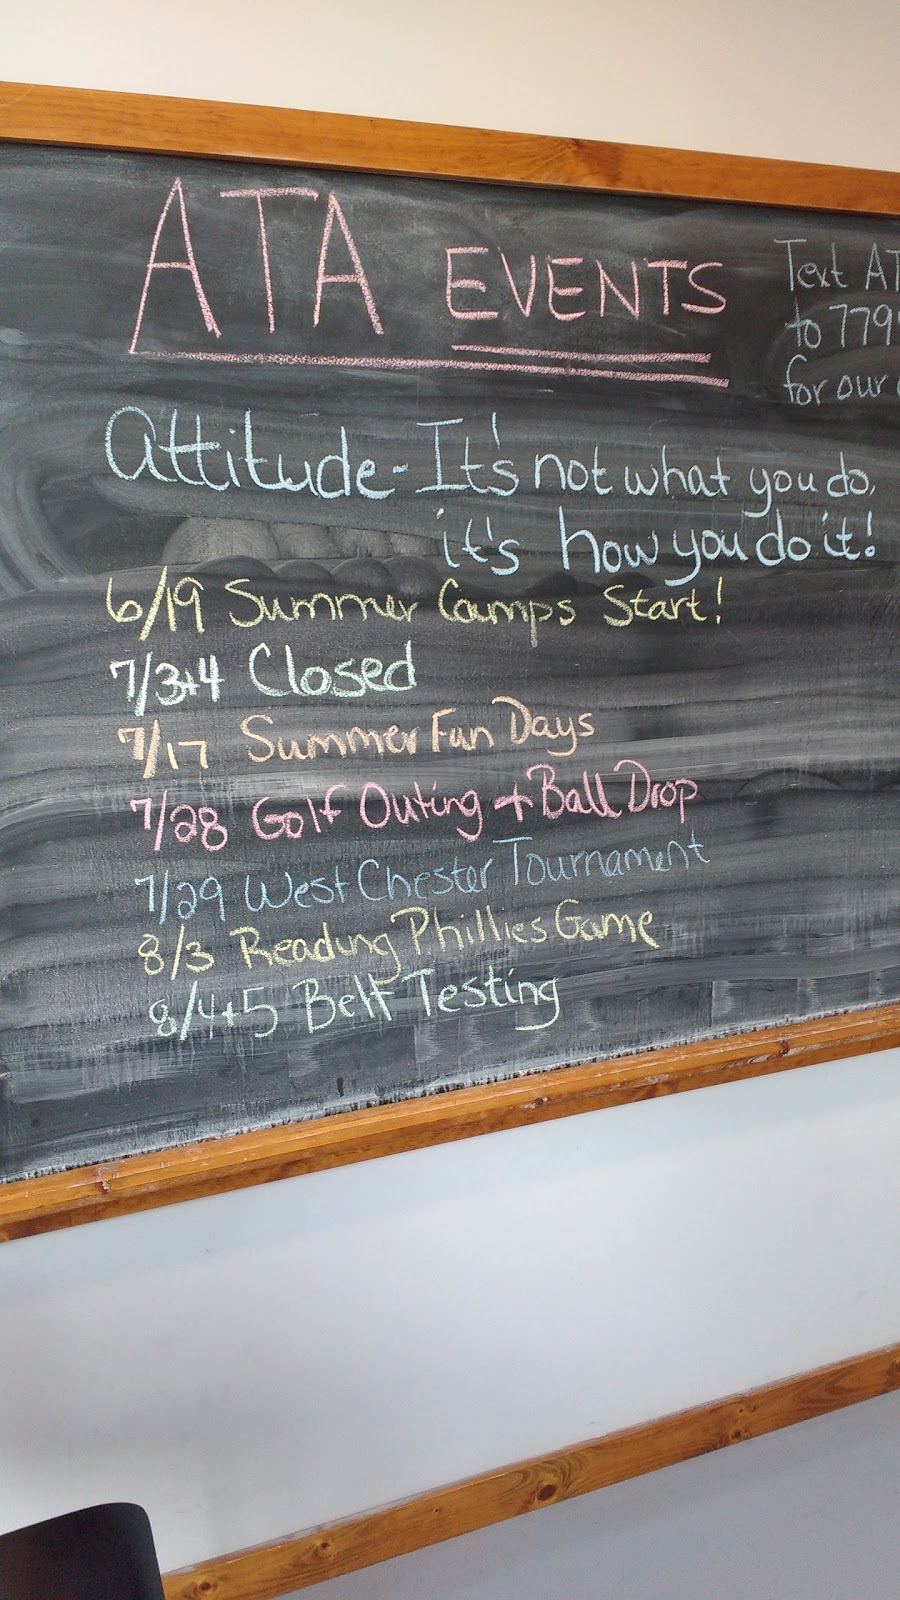 ATA EVENTS
Text AT
to 779
for our
Attitude - It's not what you do,
it's how you do it!
6/19 Summer Camps Start!
7/3+4 Closed
7/17 Summer Fun Days
7/28 Golf Outing + Ball Drop
7/29 West Chester Tournament
8/3 Reading Phillies Game
8/4+5 Belt Testing